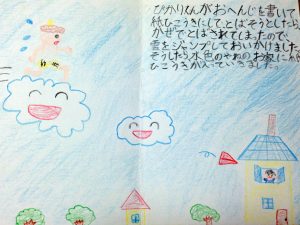 ぴかりんがおへんじを書いて
紙ひこうきにして、とばそうとしたら、
かぜでとばされてしまったので、
雲をジャンプしておいかけました。
そうしたら水色のやねのお家に紙
ひこうきが入っていきました。